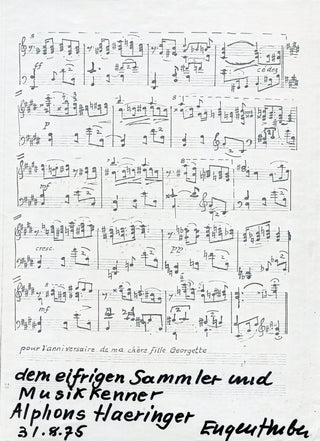 8
ff
cédez
p
8
mf
8
mf
cresc.
pp
mf
8
pour l'anniversaire de ma chère fille Georgette
dem eifrigen Sammler und
Musikkenner
Alphons Haeringer
31.8.75 Eugen Huber